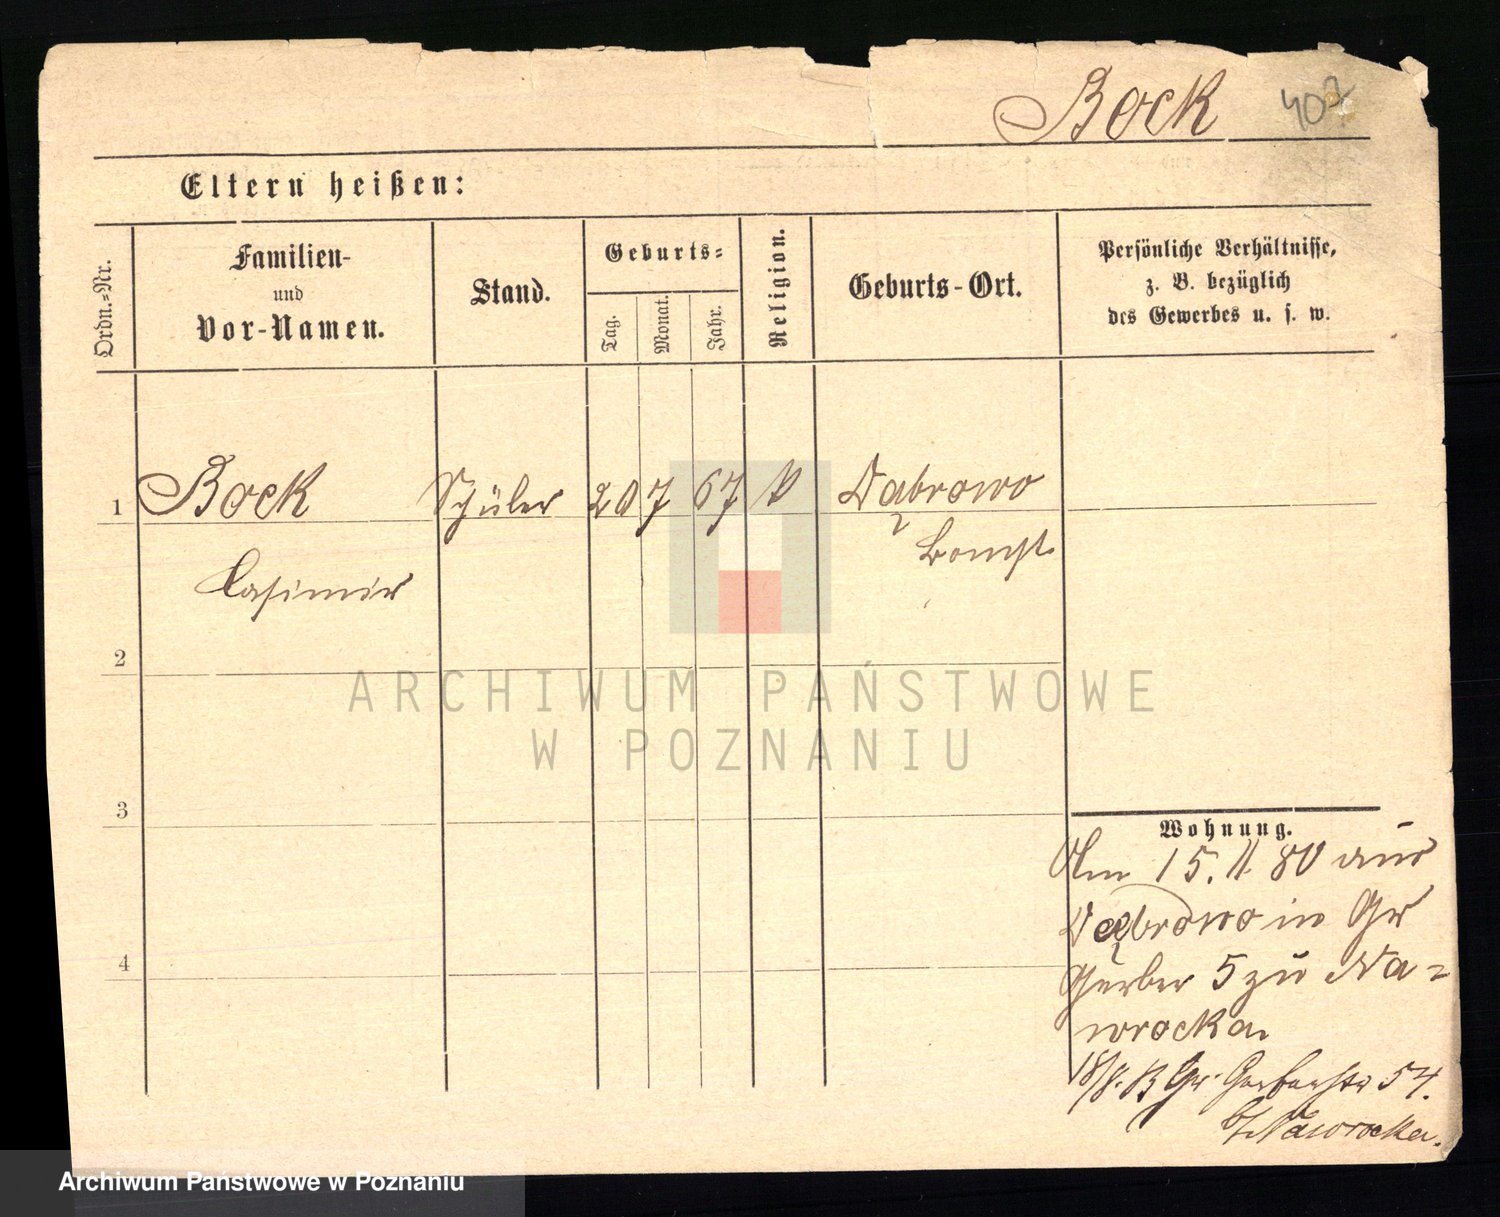 Bock 407
Eltern heißen:
Ordn.=Nr.
Familien-
und
Vor-Namen.
Stand.
Geburts=
Tag.
Monat.
Jahr.
Religion.
Geburts-Ort.
Persönliche Verhältnisse,
z. B. bezüglich
des Gewerbes u. s. w.
1 Bock Schüler 20 7 67 Dąbrowo
Bomst
Casimir
2
3
4
Wohnung.
Am 15. 11 80 aus
Dąbrowo in Gr
Gerber 5 zu Na=
wrocka
18/8. Gr. Gerberstr 54.
b/Nawrocka.
ARCHIWUM PAŃSTWOWE
W POZNANIU
Archiwum Państwowe w Poznaniu